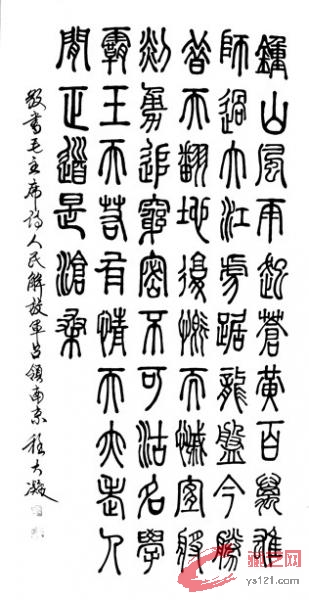 鍾山風雨起蒼黃百萬雄
師過大江虎踞龍盤今勝
昔天翻地復慨而慷宜將
剩勇追窮寇不可沽名學
霸王天若有情天亦老人
間正道是滄桑
敬書毛主席詩人民解放軍占領南京 程大
艺网
ys121.com